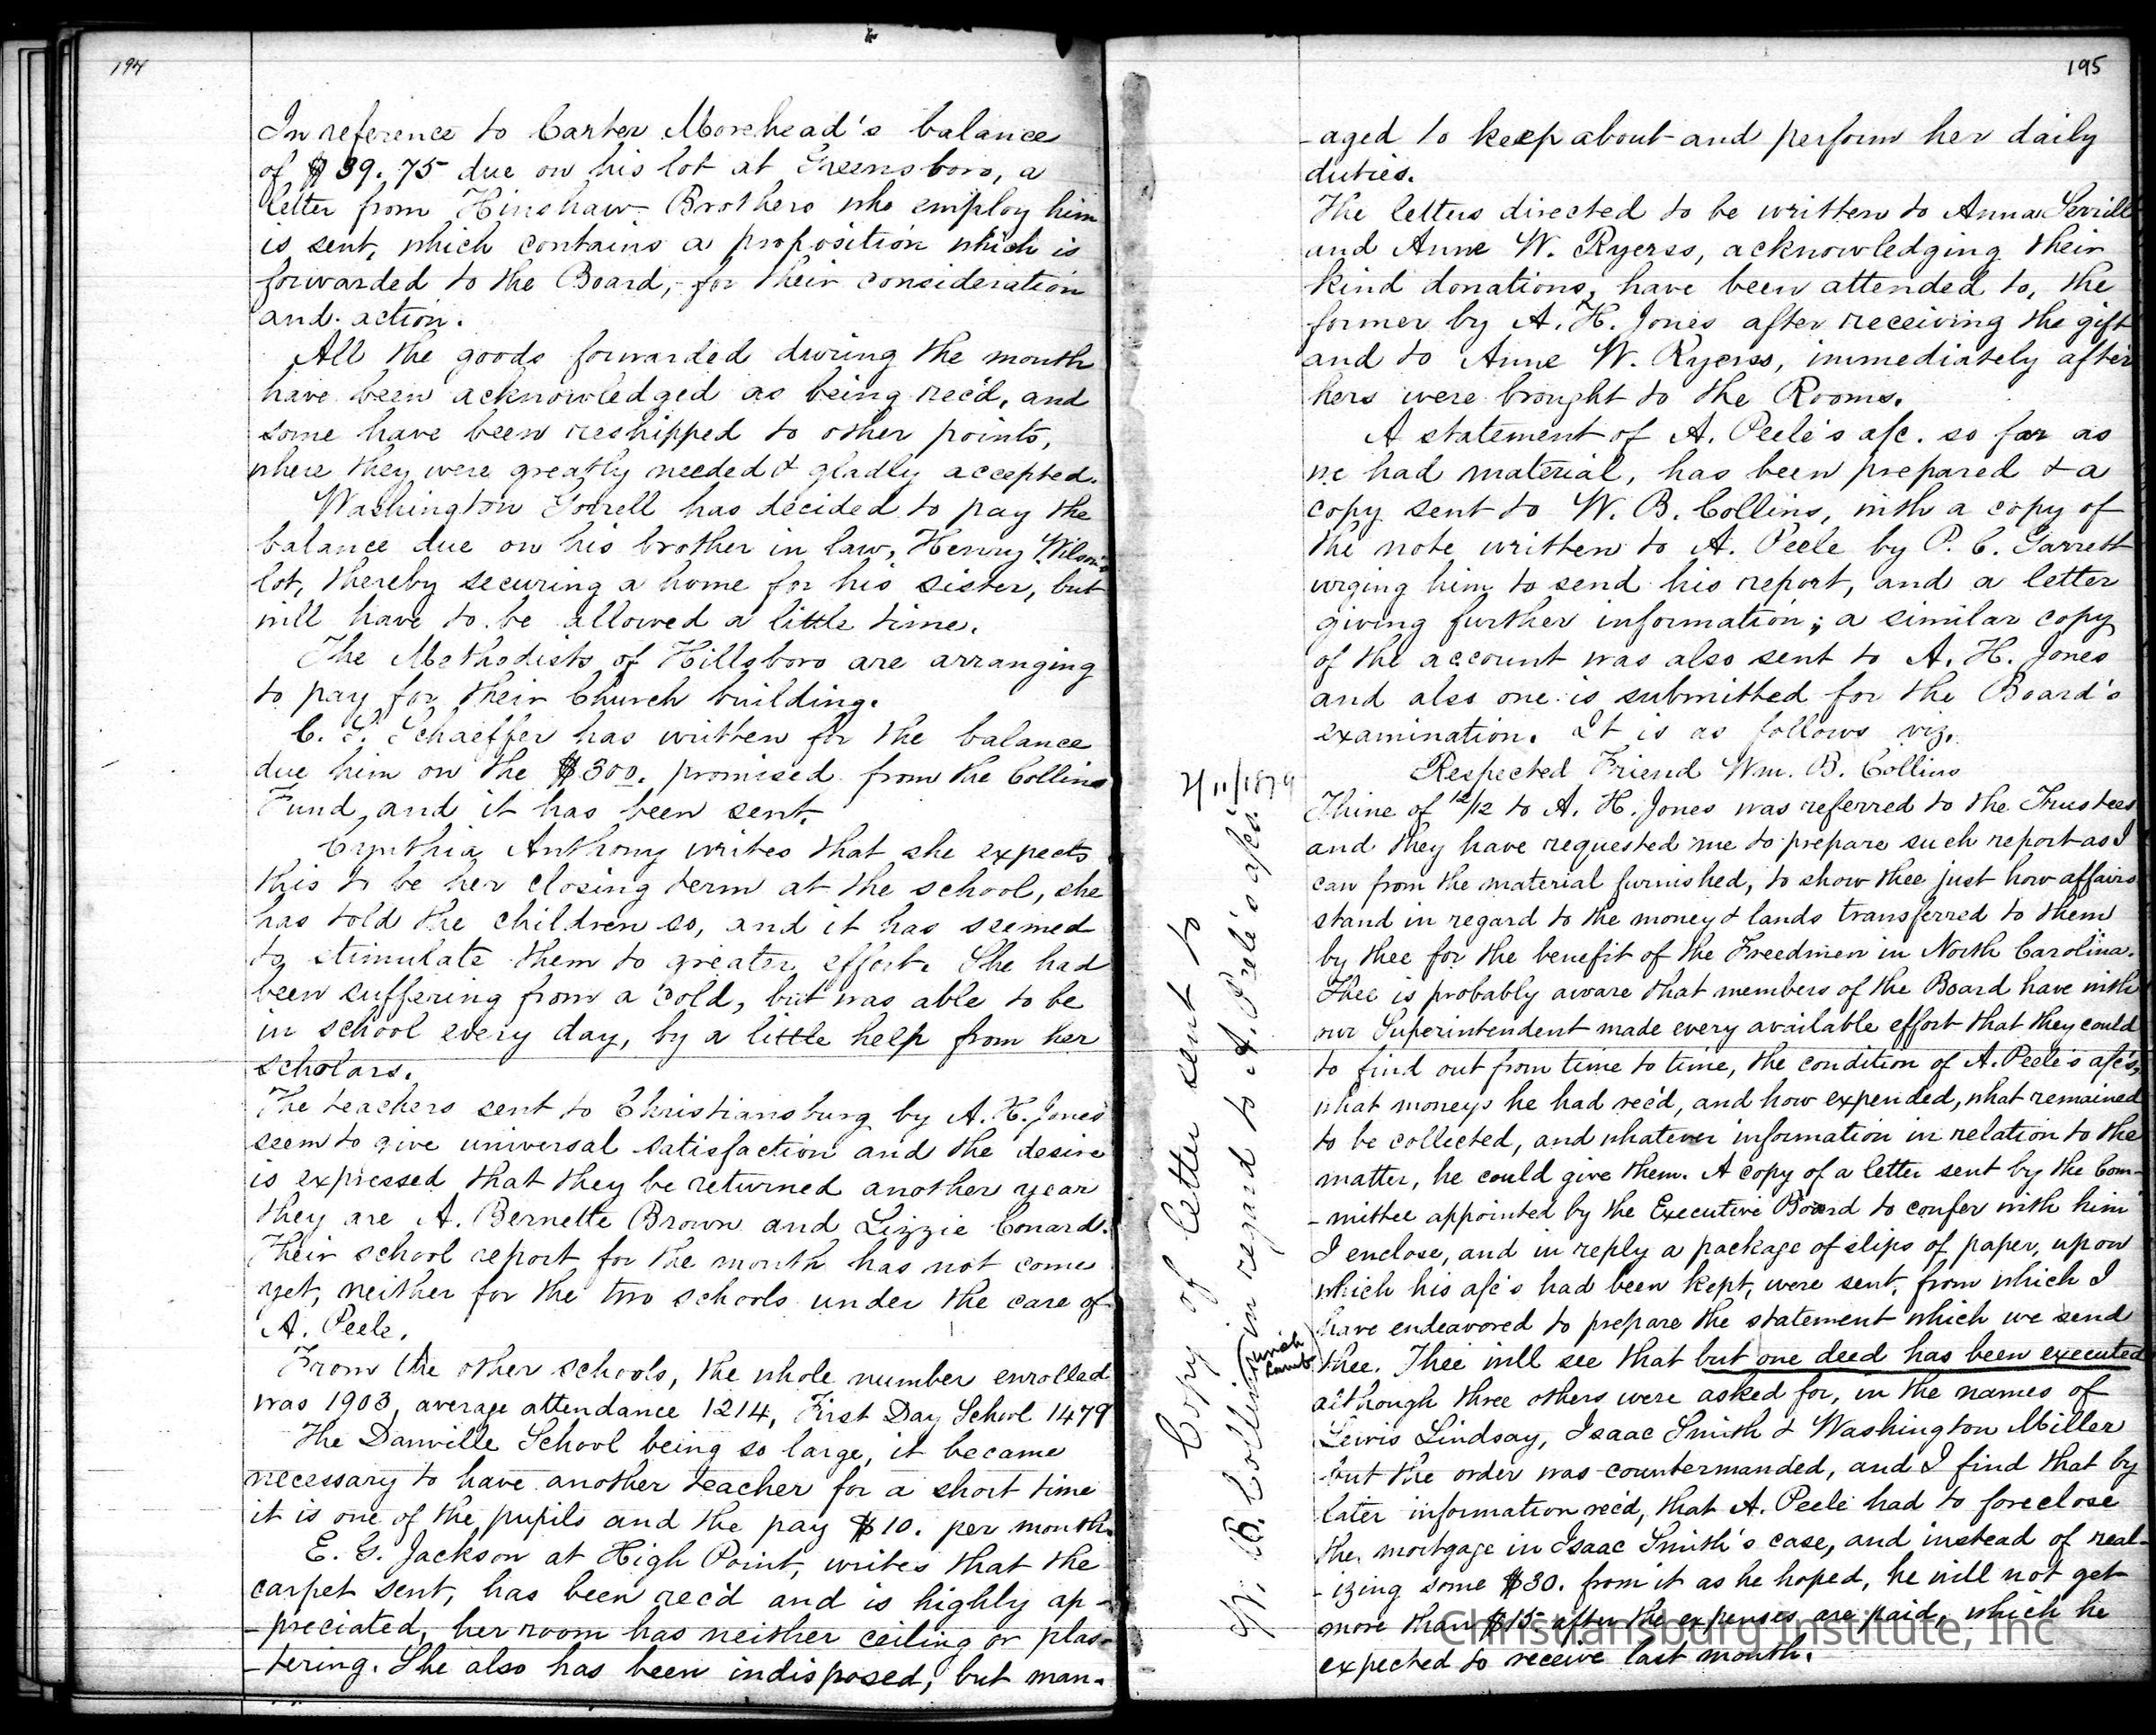 194
In reference to Carter Morehead's balance
of $39.75 due on his lot at Greensboro, a
letter from Hinshaw Brothers who employ him
is sent, which contains a proposition which is
forwarded to the Board, for their consideration
and action.
All the goods forwarded during the month
have been acknowledged as being rec'd, and
some have been reshipped to other points,
where they were greatly needed & gladly accepted.
Washington Gorrell has decided to pay the
balance due on his brother in law, Henry Wilson's
lot, thereby securing a home for his sister, but
will have to be allowed a little time.
The Methodists of Hillsboro are arranging
to pay for their Church building.
C. S. Schaeffer has written for the balance
due him on the $300. promised from the Collins
Fund, and it has been sent.
Cynthia Anthony writes that she expects
this to be her closing term at the school, she
has told the children so, and it has seemed
to stimulate them to greater effort. She had
been suffering from a cold, but was able to be
in school every day, by a little help from her
scholars.
The teachers sent to Christiansburg by A. H. Jones
seem to give universal satisfaction and the desire
is expressed that they be returned another year
they are A. Bernette Brown and Lizzie Conard.
Their school report for the month has not come
yet, neither for the two schools under the care of
A. Peele.
From the other schools, the whole number enrolled
was 1903, average attendance 1214, First Day School 1479
The Danville School being so large, it became
necessary to have another teacher for a short time
it is one of the pupils and the pay $10. per month.
E. G. Jackson at High Point, writes that the
carpet sent, has been rec'd and is highly ap-
-preciated, her room has neither ceiling or plas-
-tering. She also has been indisposed, but man-
195
-aged to keep about and perform her daily
duties.
The letters directed to be written to Anna
and Anne W. Ryerss, acknowledging their
kind donations, have been attended to, the
former by A. H. Jones after receiving the gift
and to Anne W. Ryerss, immediately after
hers were brought to the Rooms.
A statement of A. Peele's a/c. so far as
we had material, has been prepared & a
copy sent to W. B. Collins, with a copy of
the note written to A. Peele by P. C. Garrett
urging him to send his report, and a letter
giving further information; a similar copy
of the account was also sent to A. H. Jones
and also one is submitted for the Board's
examination. It is as follows viz.
Respected Friend Wm. B. Collins
Thine of 12/12 to A. H. Jones was referred to the Trustees
and they have requested me to prepare such report as I
can from the material furnished, to show thee just how affairs
stand in regard to the money & lands transferred to them
by thee for the benefit of the Freedmen in North Carolina.
Thee is probably aware that members of the Board have with
our Superintendent made every available effort that they could
to find out from time to time, the condition of A. Peele's a/c's,
what moneys he had rec'd, and how expended, what remained
to be collected, and whatever information in relation to the
matter, he could give them. A copy of a letter sent by the Com-
-mittee appointed by the Executive Board to confer with him
I enclose, and in reply a package of slips of paper, upon
which his a/c's had been kept, were sent, from which I
have endeavored to prepare the statement which we send
thee. Thee will see that but one deed has been executed
although three others were asked for, in the names of
Lewis Lindsay, Isaac Smith & Washington Miller
but the order was countermanded, and I find that by
later information rec'd, that A. Peele had to foreclose
the mortgage in Isaac Smith's case, and instead of real-
-izing some $30. from it as he hoped, he will not get
more than $15 after the expenses are paid, which he
expected to receive last month.
2/11/1879
Copy of letter sent to
W. B. Collins in regard to A. Peele's a/cs
Christiansburg Institute, Inc